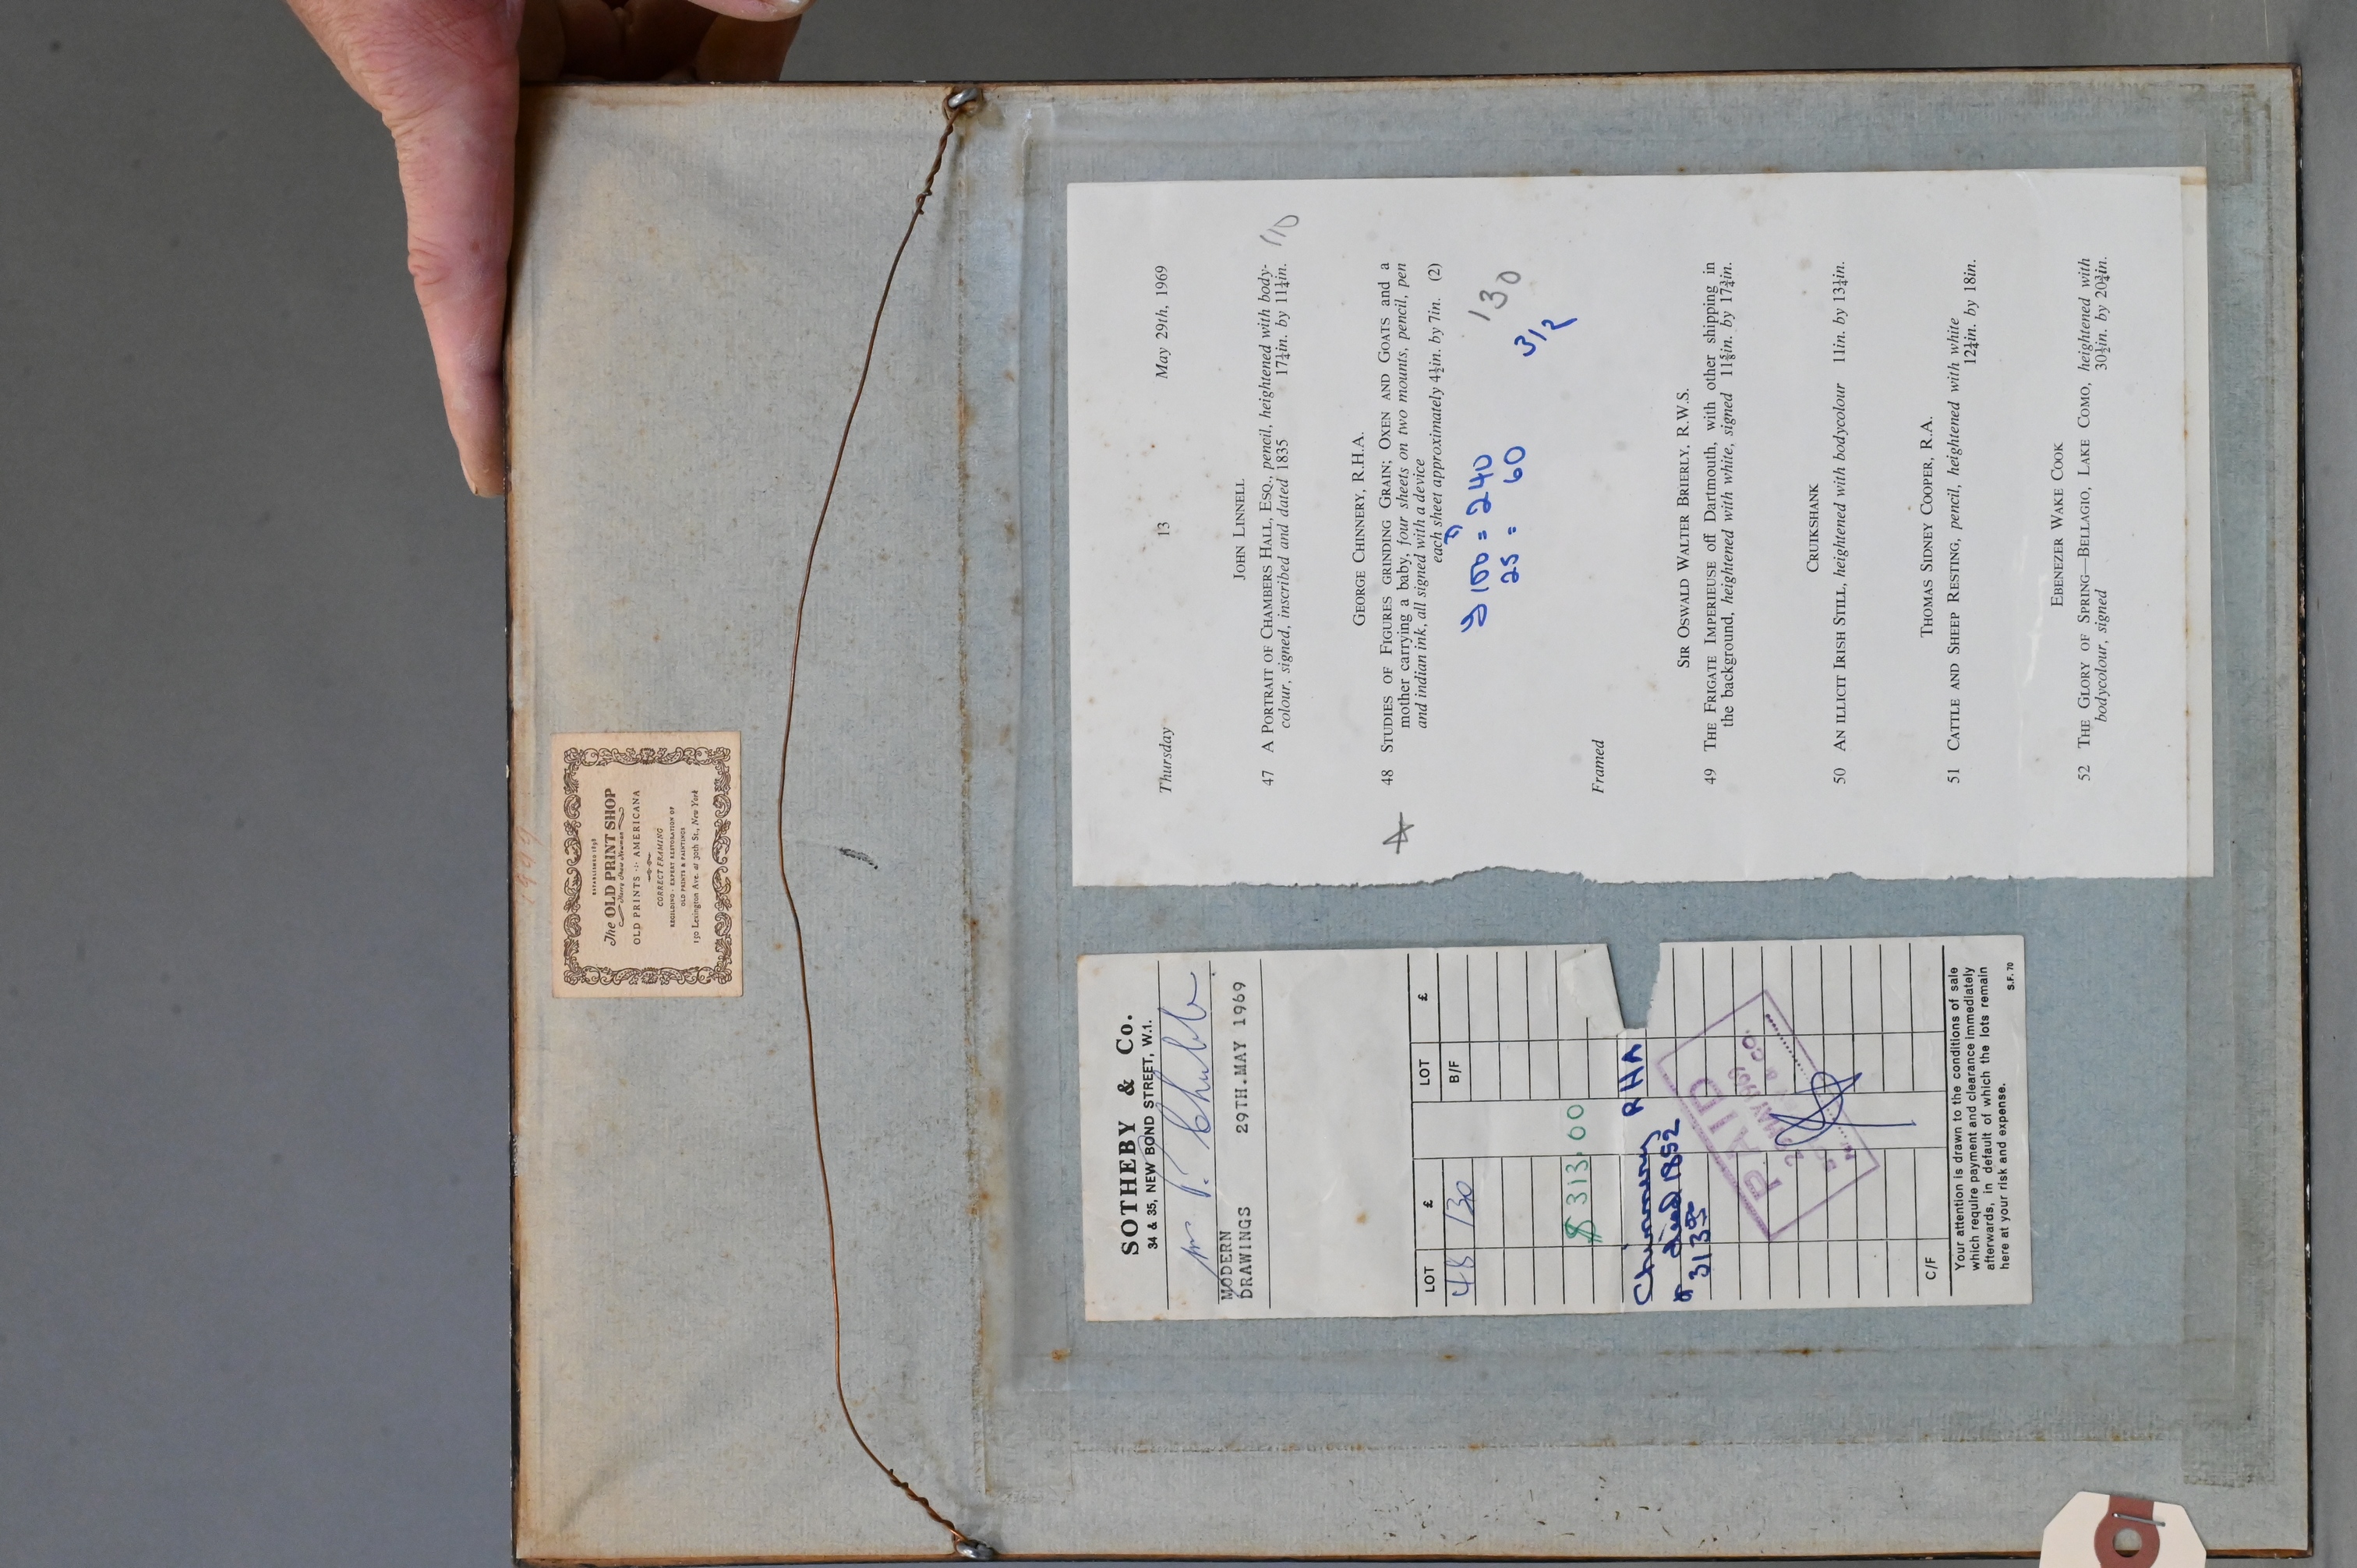 ESTABLISHED 1898
The OLD PRINT SHOP
Harry Shaw Newman
OLD PRINTS AMERICANA
CORRECT FRAMING
REGILDING · EXPERT RESTORATION OF
OLD PRINTS & PAINTINGS
150 Lexington Ave. at 30th St., New York
SOTHEBY & Co.
34 & 35, NEW BOND STREET, W.1.
Chubb
MODERN
DRAWINGS 29TH.MAY 1969
LOT £ LOT £
48 130 B/F
$ 313.00
Chinnery RHA
died 1852
PAID
MAY 1969
& CO.
C/F
Your attention is drawn to the conditions of sale
which require payment and clearance immediately
afterwards, in default of which the lots remain
here at your risk and expense.
S.F. 70
Thursday 13 May 29th, 1969
JOHN LINNELL
47 A PORTRAIT OF CHAMBERS HALL, ESQ., pencil, heightened with body-
colour, signed, inscribed and dated 1835 17¼in. by 11¼in.
110
GEORGE CHINNERY, R.H.A.
48 STUDIES OF FIGURES GRINDING GRAIN; OXEN AND GOATS and a
mother carrying a baby, four sheets on two mounts, pencil, pen
and indian ink, all signed with a device
each sheet approximately 4½in. by 7in. (2)
100 = 240
25 = 60
130
3/2
Framed
SIR OSWALD WALTER BRIERLY, R.W.S.
49 THE FRIGATE IMPERIEUSE off Dartmouth, with other shipping in
the background, heightened with white, signed 11⅝in. by 17¾in.
CRUIKSHANK
50 AN ILLICIT IRISH STILL, heightened with bodycolour 11in. by 13¾in.
THOMAS SIDNEY COOPER, R.A.
51 CATTLE AND SHEEP RESTING, pencil, heightened with white
12¼in. by 18in.
EBENEZER WAKE COOK
52 THE GLORY OF SPRING—BELLAGIO, LAKE COMO, heightened with
bodycolour, signed 30½in. by 20¾in.